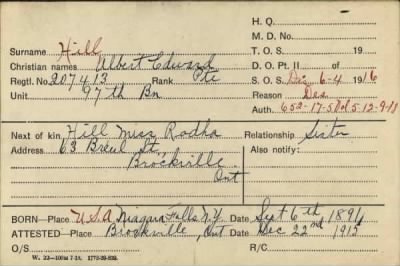 H. Q.
Surname Hill
M. D. No.
Christian names Albert Edward
T. O. S. 19
Regtl. No. 207413 Rank Pte
D. O. Pt. II of
Unit 97th Bn
S. O. S. Dec 6-4 1916
Reason Des
Auth. 652-17-5 5-12-9-18
Next of kin Hill Miss Rodha Relationship Sister
Address 63 Breul St, Also notify:
Brockville
Ont
BORN—Place U.S.A Niagara Falls N.Y Date Sept 6th 1894
ATTESTED—Place Brockville, Ont Date Dec 22nd 1915
O/S R/C